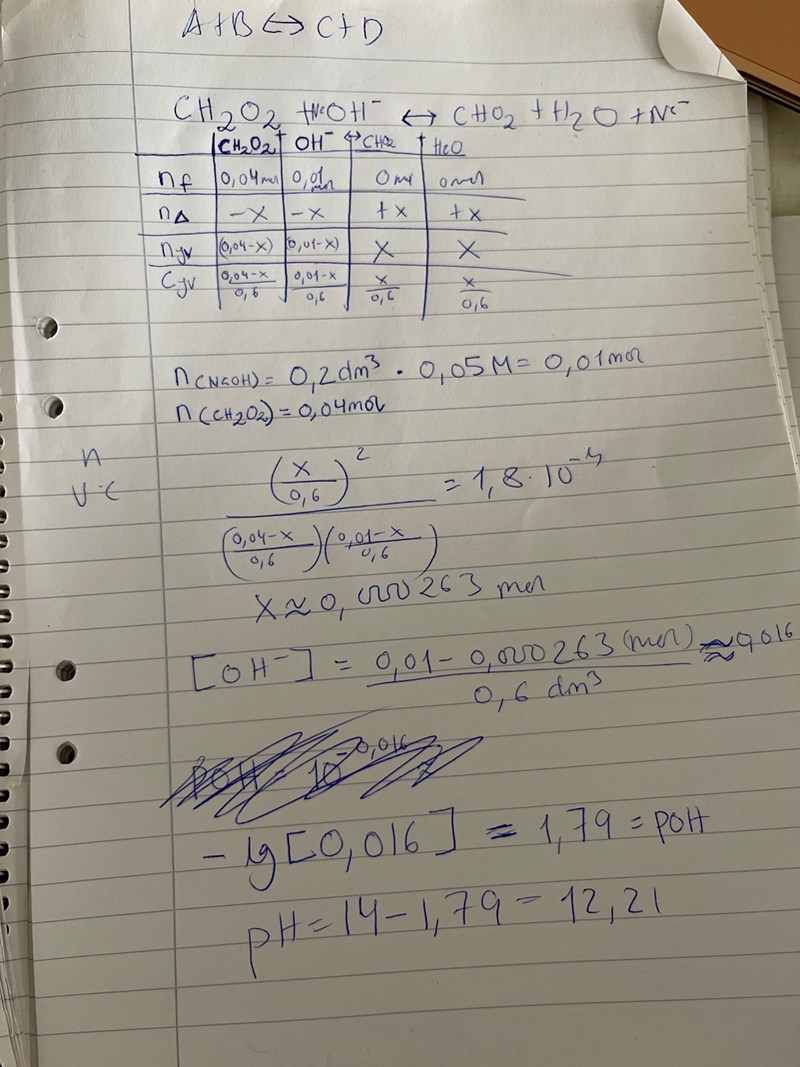 A+B ⟷ C+D
CH₂O₂ +NaOH⁻ ⟷ CHO₂ + H₂O + Na⁻
CH₂O₂ + OH⁻ ⟷ CHO₂ + H₂O
nf 0,04mol 0,01mol 0ml 0mol
n△ -x -x +x +x
nyv (0,04-x) (0,01-x) x x
Cyv 0,04-x/0,6 0,01-x/0,6 x/0,6 x/0,6
n(NaOH) = 0,2dm³ · 0,05M = 0,01mol
n(CH₂O₂) = 0,04mol
n
V·C
(x/0,6)² / (0,04-x/0,6)(0,01-x/0,6) = 1,8·10⁻⁴
x ≈ 0,000263 mol
[OH⁻] = 0,01-0,000263(mol) / 0,6 dm³ ≈ 0,016
-lg[0,016] = 1,79 = pOH
pH=14-1,79=12,21